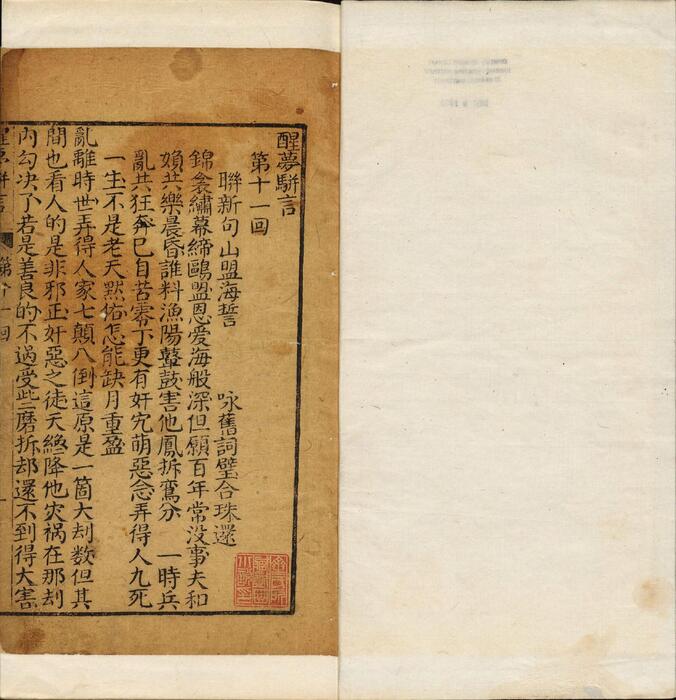 醒夢駢言
第十一回
聯新句山盟海誓 咏舊詞璧合珠還
錦衾繡幕締鷗盟恩爱海般深但願百年常没事夫和
婦共樂晨昏誰料漁陽鼙鼓害他鳳拆鸞分 一時兵
亂共狂奔巳自苦零丁更有奸宄萌惡念弄得人九死
一生不是老天黙佑怎能缺月重盈
亂離時世弄得人家七顛八倒這原是一箇大刦數但其
間也看人的是非邪正奸惡之徒天終降他灾禍在那刦
内勾决了若是善良的不過受些磨拆却還不到得大害
醒夢駢言 第十一回